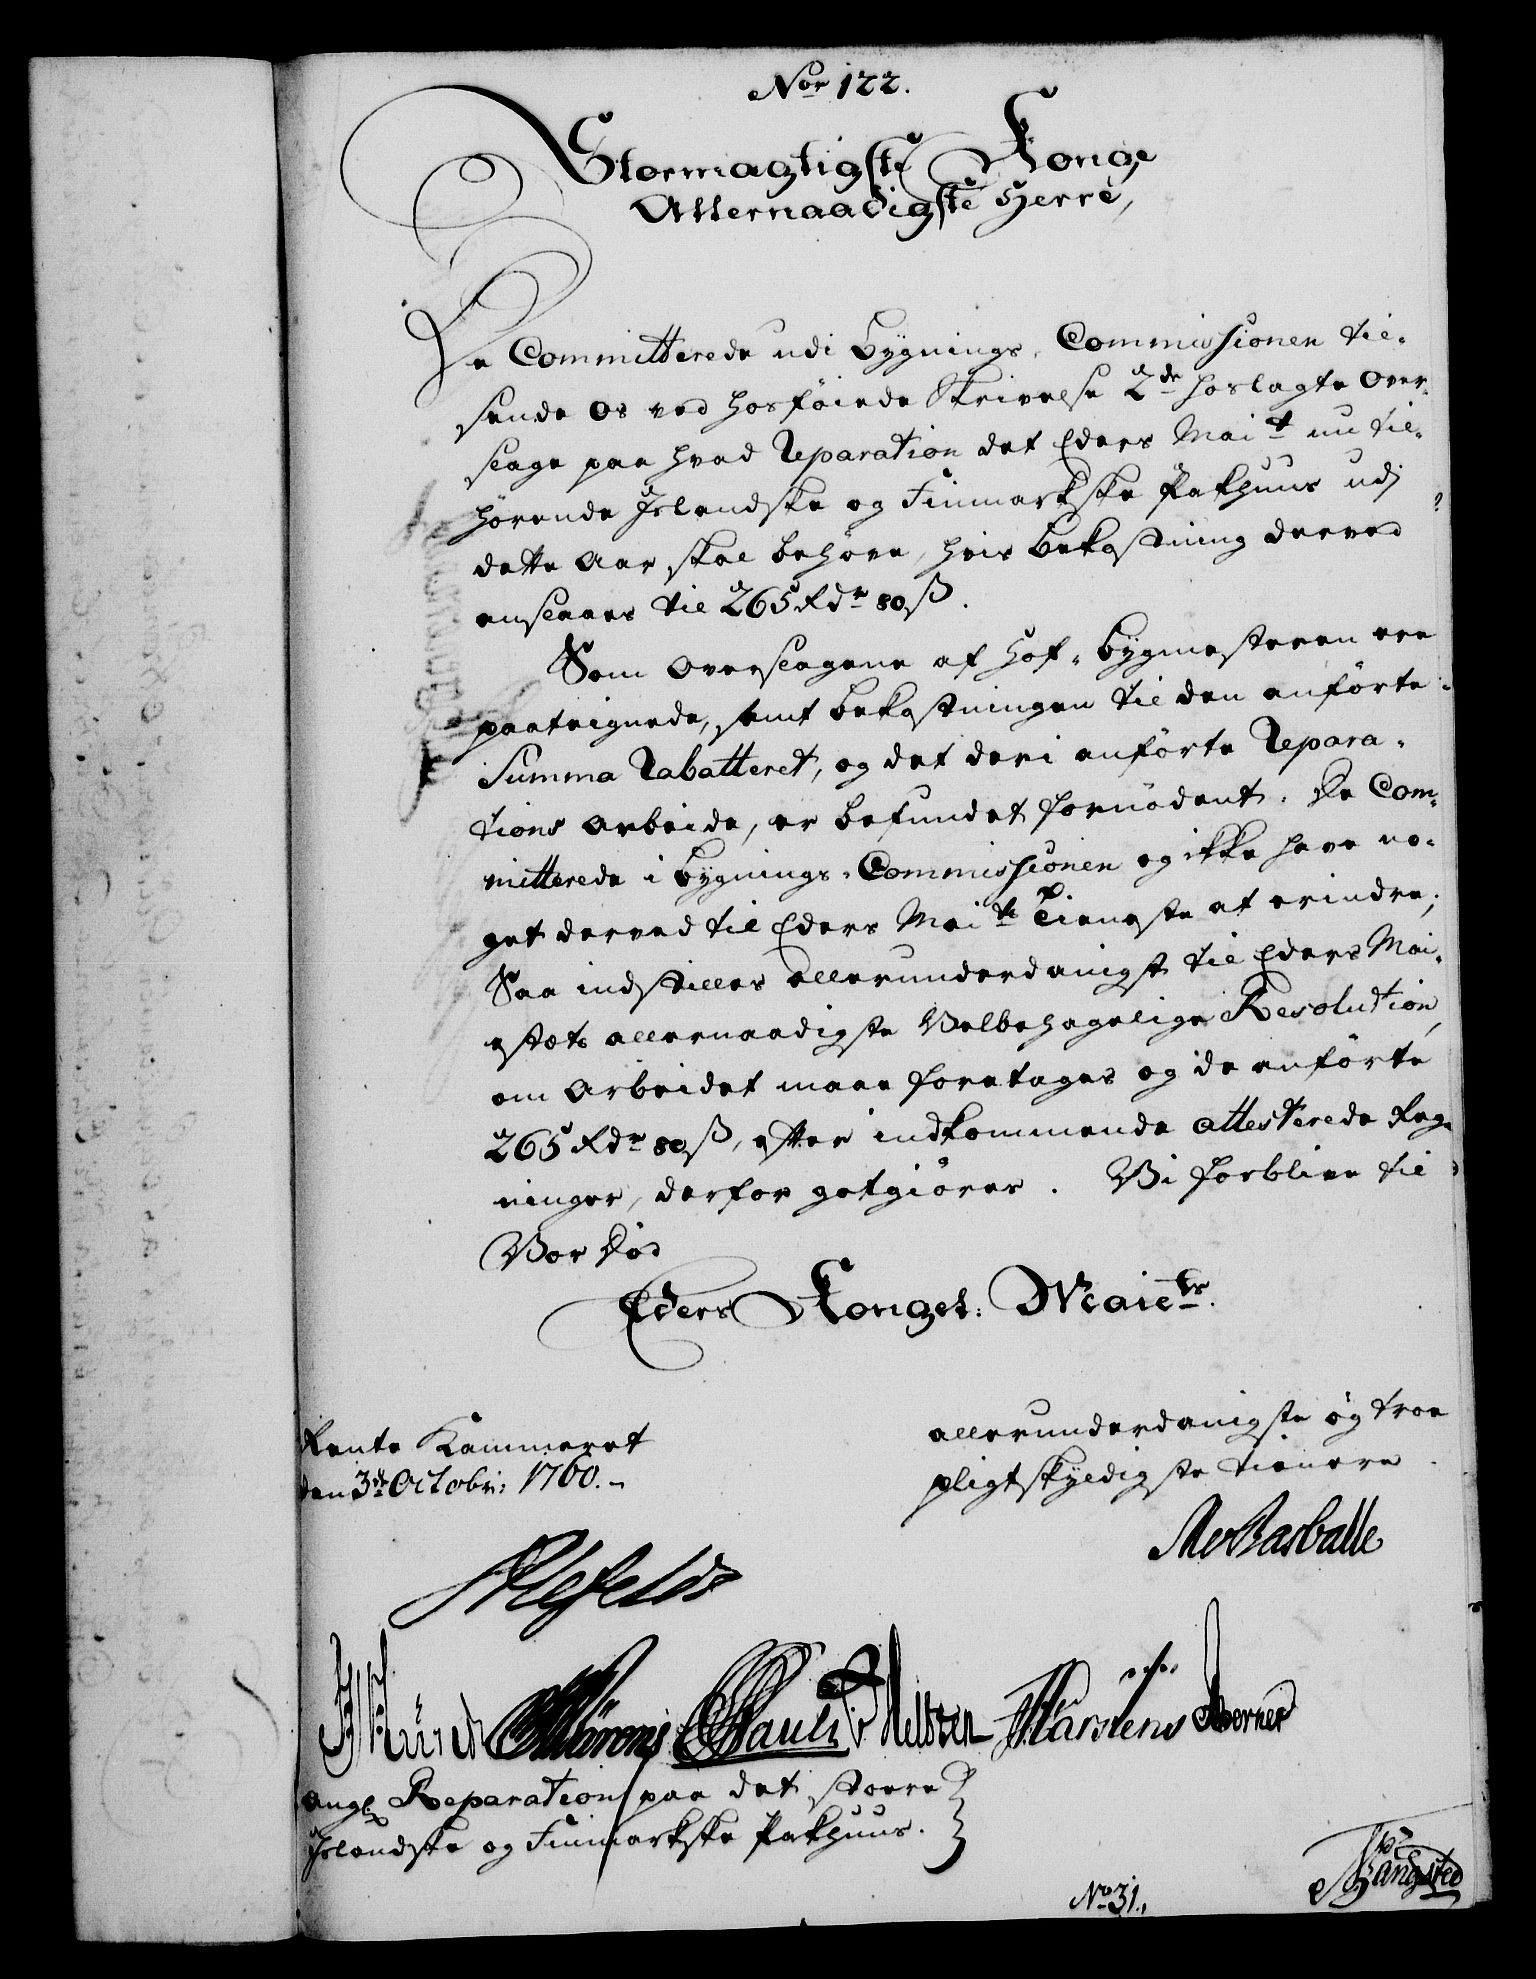 Nor 122.
Stormagtigste Konge
Allernaadigste Herre,
De Committerede udi Bygnings-Commissionen til-
sende os ved hosföiede Skrivelse 2de hoslagte Over-
slage paa hvad Reparation det Eders Mait nu til-
hörende Islandske og Finmarkske Pakhuus udj
dette Aar skal behöve, hvis Bekostning derved
anslaaes til 265 Rdr 80 ß.
Som Overslagene af Hof-Bygmesteren ere
paateignede, samt Bekostningen til den anförte
Summa Rabatteret, og det deri anförte Repara-
tions Arbeide, er befundet fornödent. De Com-
mitterede i Bygnings-Commissionen og ikke have no-
get derved til Eders Maits Tieneste at erindre;
Saa indstilles allerunderdanigst til Eders Mai-
estæts allernaadigste Velbehagelige Resolution,
om Arbeidet maae foretages og de anförte
265 Rdr 80 ß, efter indkommende attesterede Reg-
ninger, derfor gotgiöres. Vi forblive til
Vor Död
Eders Kongel: Maiets.
allerunderdanigste og troe
pligtskyldigste tienere
Rente Kammeret
den 3de Octobr: 1760.
Barballe
Ahlefeldt
Pauli Holtzen Karstens Berner
angl Reparation paa det stoere
Islandske og Finmarkske Pakhuus.
No 31.
Bangsted